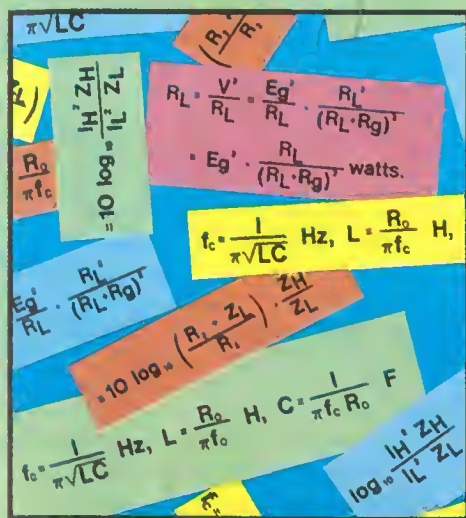 π√LC
(R₁ / R₁
= 10 log₁₀ I_H' Z_H / I_L² Z_L
R_L = V' / R_L = Eg' / R_L · R_L' / (R_L·Rg)'
= Eg' · R_L / (R_L·Rg)' watts.
R₀ / πf_c
f_c = 1 / π√LC Hz, L = R₀ / πf_c H,
Eg' / R_L · R_L' / (R_L·Rg)'
= 10 log₁₀ (R₁ · Z_L / R₁) · Z_H / Z_L
f_c = 1 / π√LC Hz, L = R₀ / πf₀ H, C = 1 / πf_c R₀ F
log₁₀ I_H' Z_H / I_L' Z_L